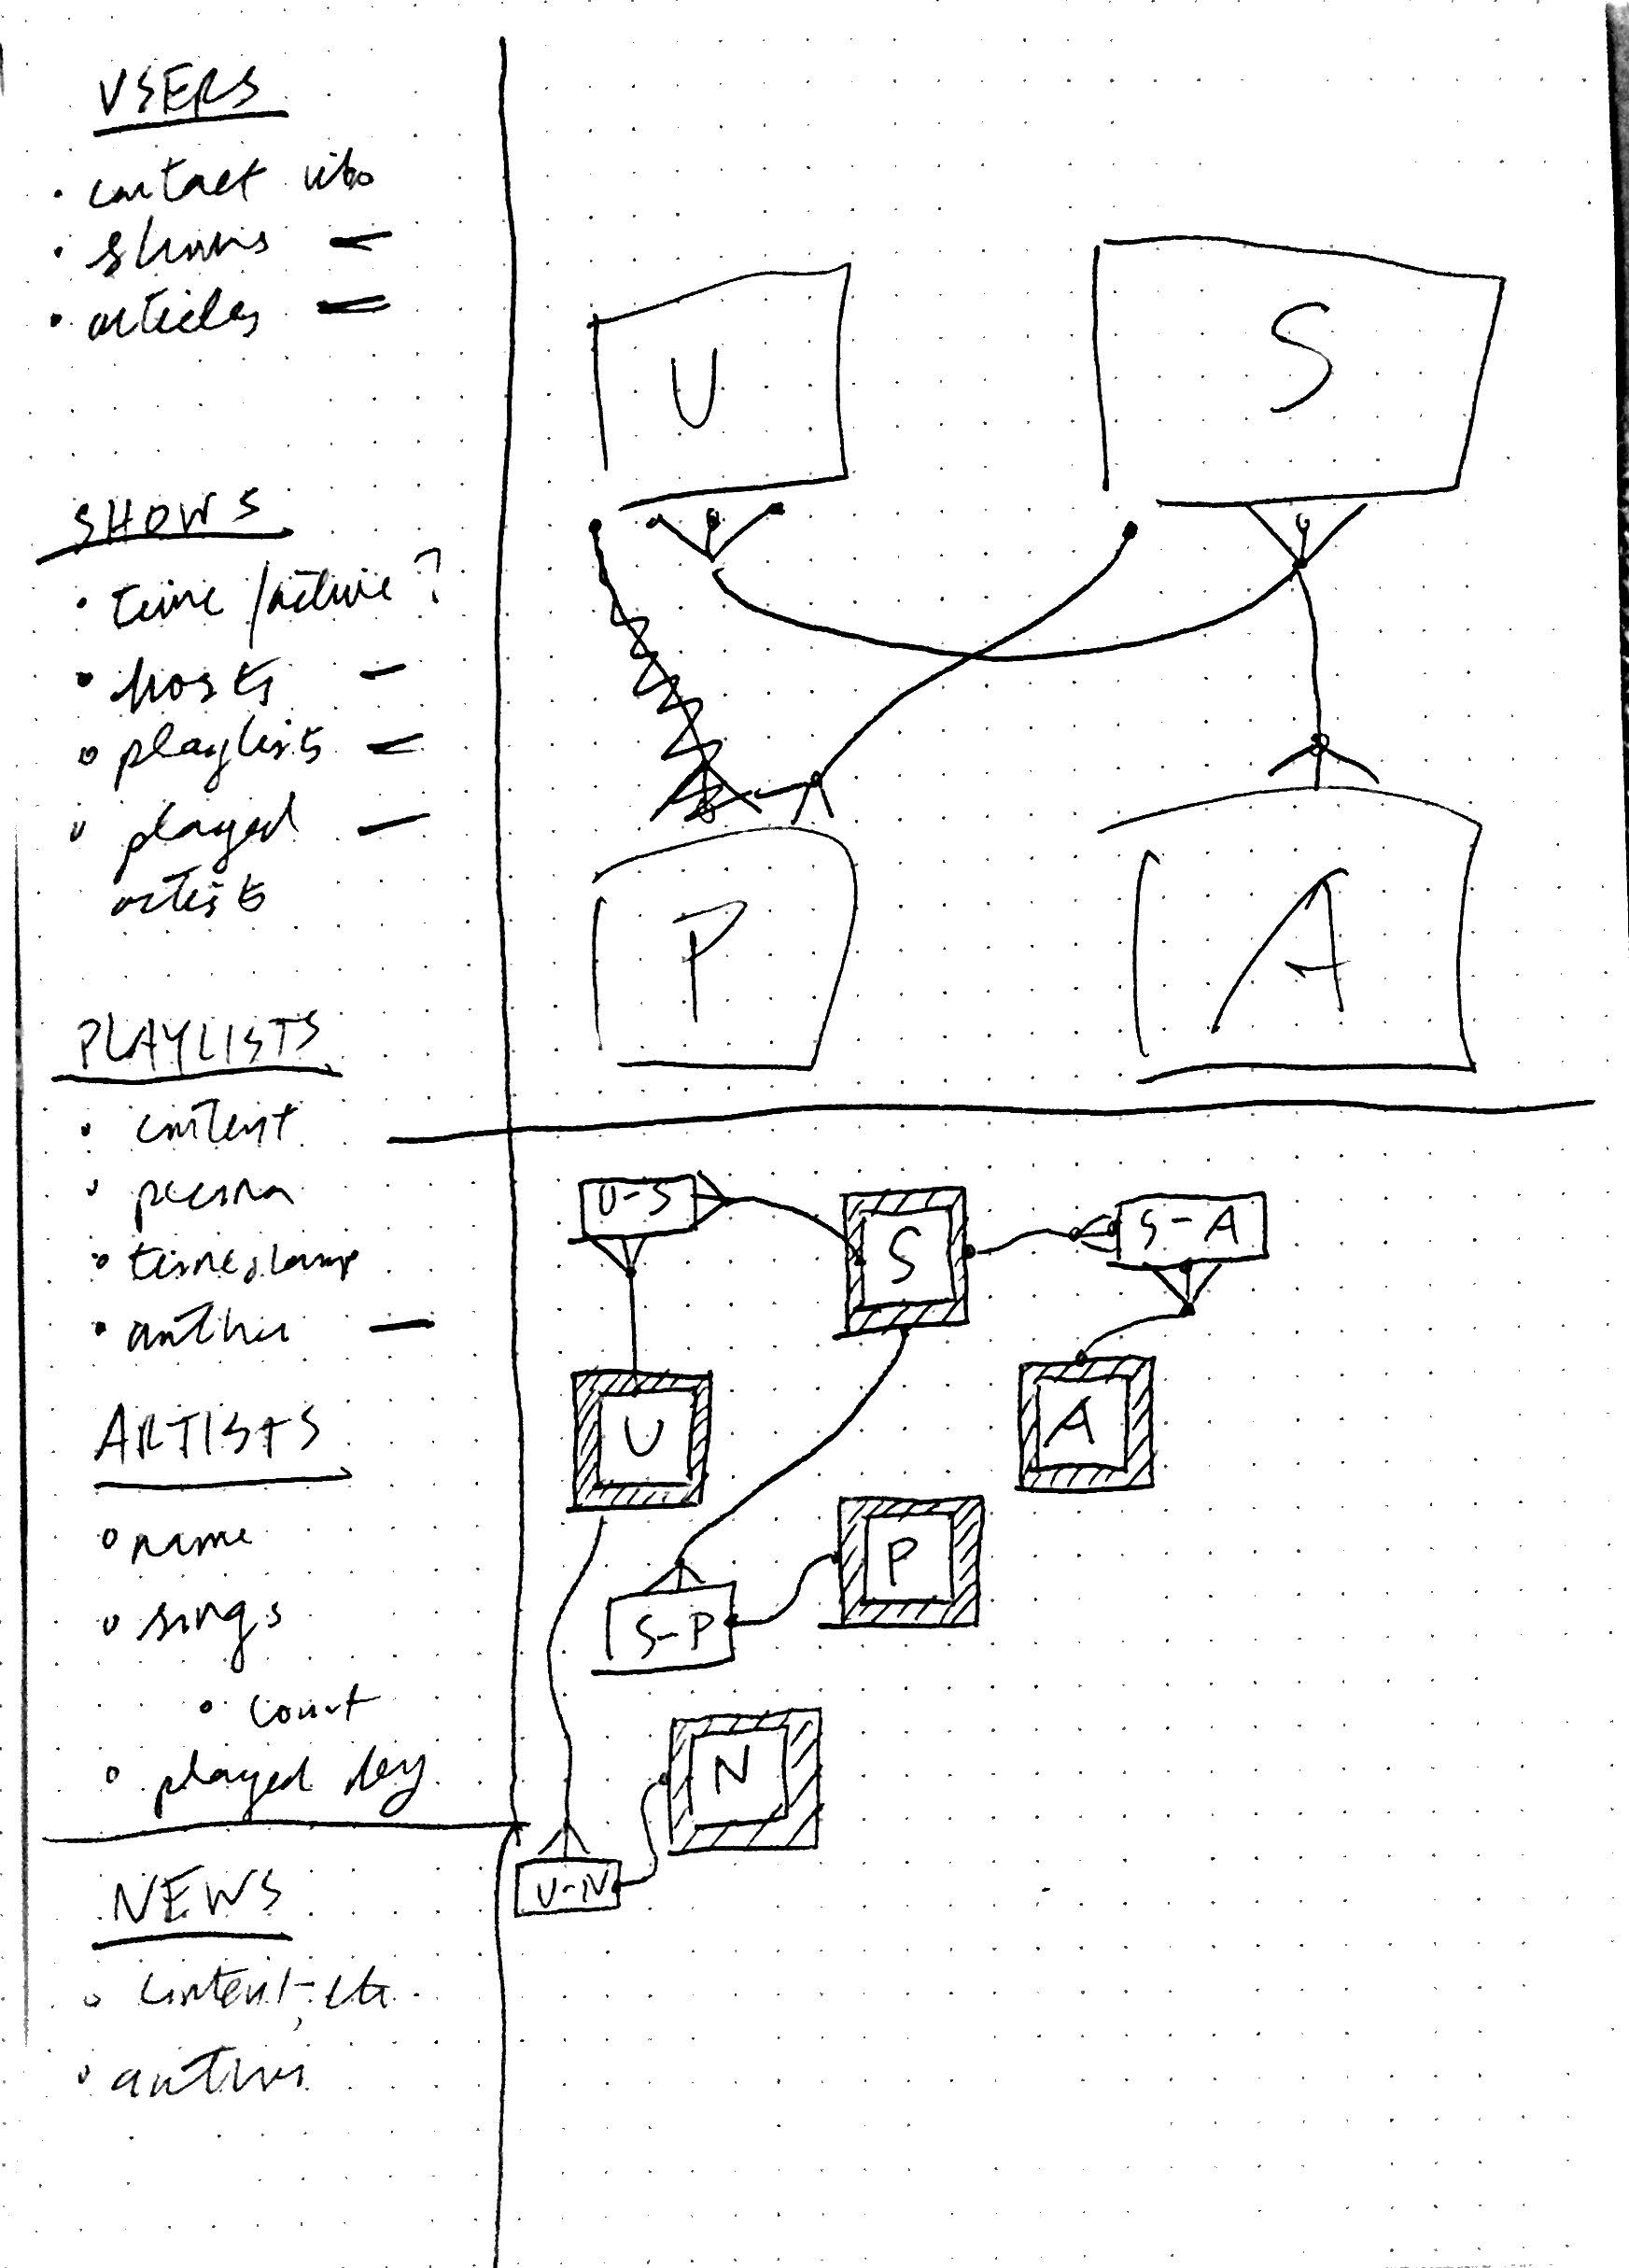 USERS
• contact info
• shows —
• articles =
SHOWS
• time/active?
• hosts –
• playlists =
• played –
artists
PLAYLISTS
• content
• persona
• timestamp
• author —
ARTISTS
• name
• songs
• count
• played by
NEWS
• content, etc.
• author
U
S
P
A
U-S
S
S-A
U
A
P
S-P
N
U-N